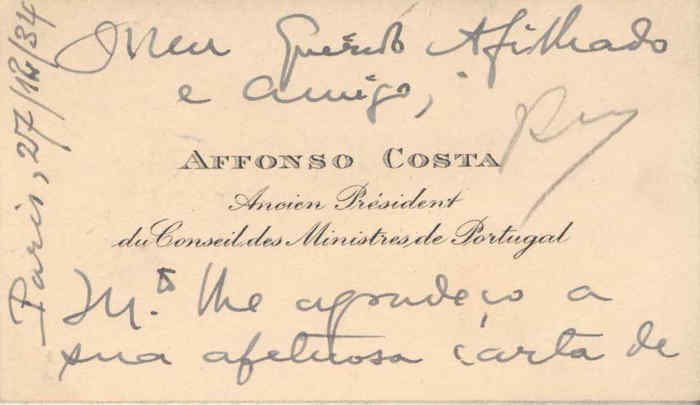 Paris, 27/12/34
Meu Querido Afilhado
e amigo,
AFFONSO COSTA
Ancien Président
du Conseil des Ministres de Portugal
M.to lhe agradeço a
sua afetuosa carta de